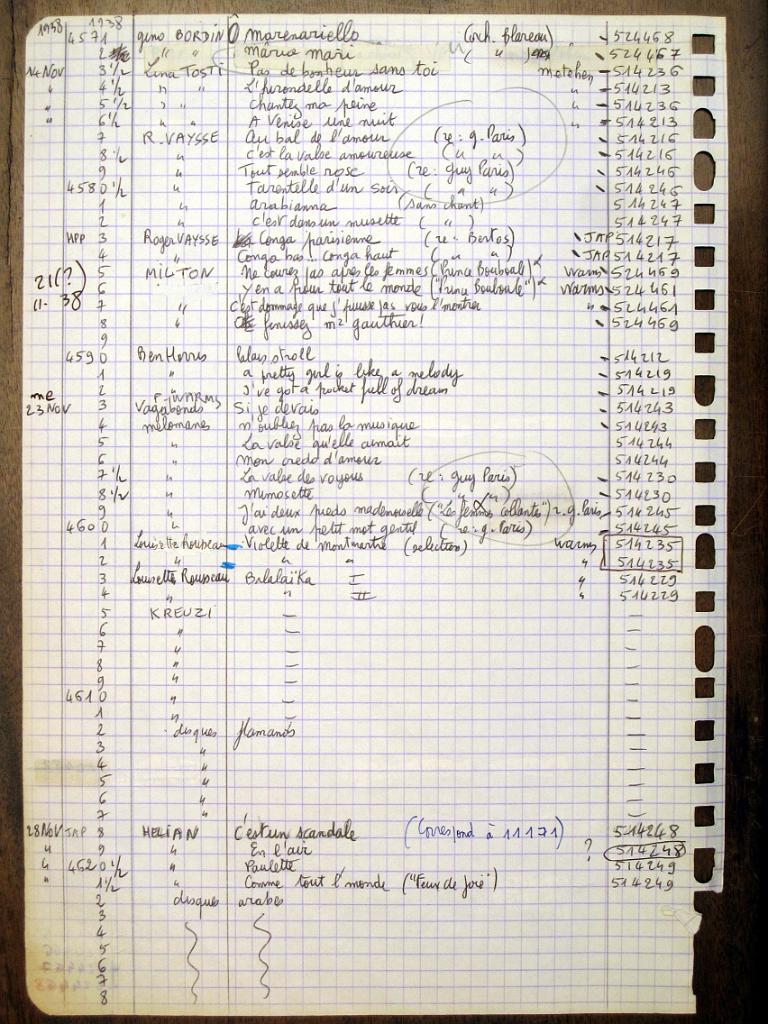 1938 1938
4571 gino BORDIN O marenariello (orch. plareau) 524468
2 " " māria mari ( " ) 524467
14 Nov 3 1/2 Lina TOSTI Pas de bonheur sans toi metehen 514236
" 4 1/2 " " L'hirondelle d'amour " 514213
" 5 1/2 " " chantez ma peine " 514236
" 6 1/2 " " A Venise une nuit " 514213
7 R. VAYSSE Au bal de l'amour (re: g. Paris) 514216
8 1/2 " c'est la valse amoureuse ( " " ) 514216
9 " Tout semble rose (re: guy Paris) 514246
4580 1/2 " Tarentelle d'un soir ( " " ) 514246
1 " arabianna (sans chant) 514247
2 " c'est dans un musette ( " ) 514247
HPP 3 Roger VAYSSE Conga parisienne (re: Bertos) JAP 514217
4 " Conga bas... conga haut ( " " ) JAP 514217
21(?) 5 MILTON Ne courez pas après les femmes (Prince Bouboule) Warms 524469
11-38 6 " Y en a pour tout le monde ("Prince Bouboule") Warms 524461
7 " c'est dommage que j'puisse pas vous l'montrer " 524461
8 " finissez mr gauthier! 524469
9
4590 Ben Horris palais stroll 514212
1 " a pretty girl is like a melody 514219
2 " I've got a pocket full of dream 514219
me 23 Nov 3 P. WARMS Vagabonds Si je devais 514243
4 mélomanes n'oubliez pas la musique 514243
5 " La valse qu'elle aimait 514244
6 " mon credo d'amour 514244
7 1/2 " La valse des voyous (re: guy Paris) 514230
8 1/2 " Mimosette ( " " ) 514230
9 " J'ai deux pieds mademoiselle ("Les femmes collantes") r. g. Paris 514245
4600 " avec un petit mot gentil (re: g. Paris) 514245
1 Louisette Rousseau Violette de montmartre (selection) Warms 514235
2 " " " " 514235
3 Louisette Rousseau Balalaïka I " 514229
4 " " II " 514229
5 KREUZI — —
6 " — —
7 " — —
8 " — —
9 " — —
4610 " — —
1 " — —
2 disques flamands —
3 " —
4 " —
5 " —
6 " —
7 " —
28 Nov JAP 8 HELIAN C'est un scandale (Correspond à 11171) 514248
" 9 " En l'air ? 514248
" 4620 1/2 " Paulette 514249
" 1 1/2 " Comme tout l'monde ("Feux de joie") 514249
2 disques arabes
3
4
5
6
7
8